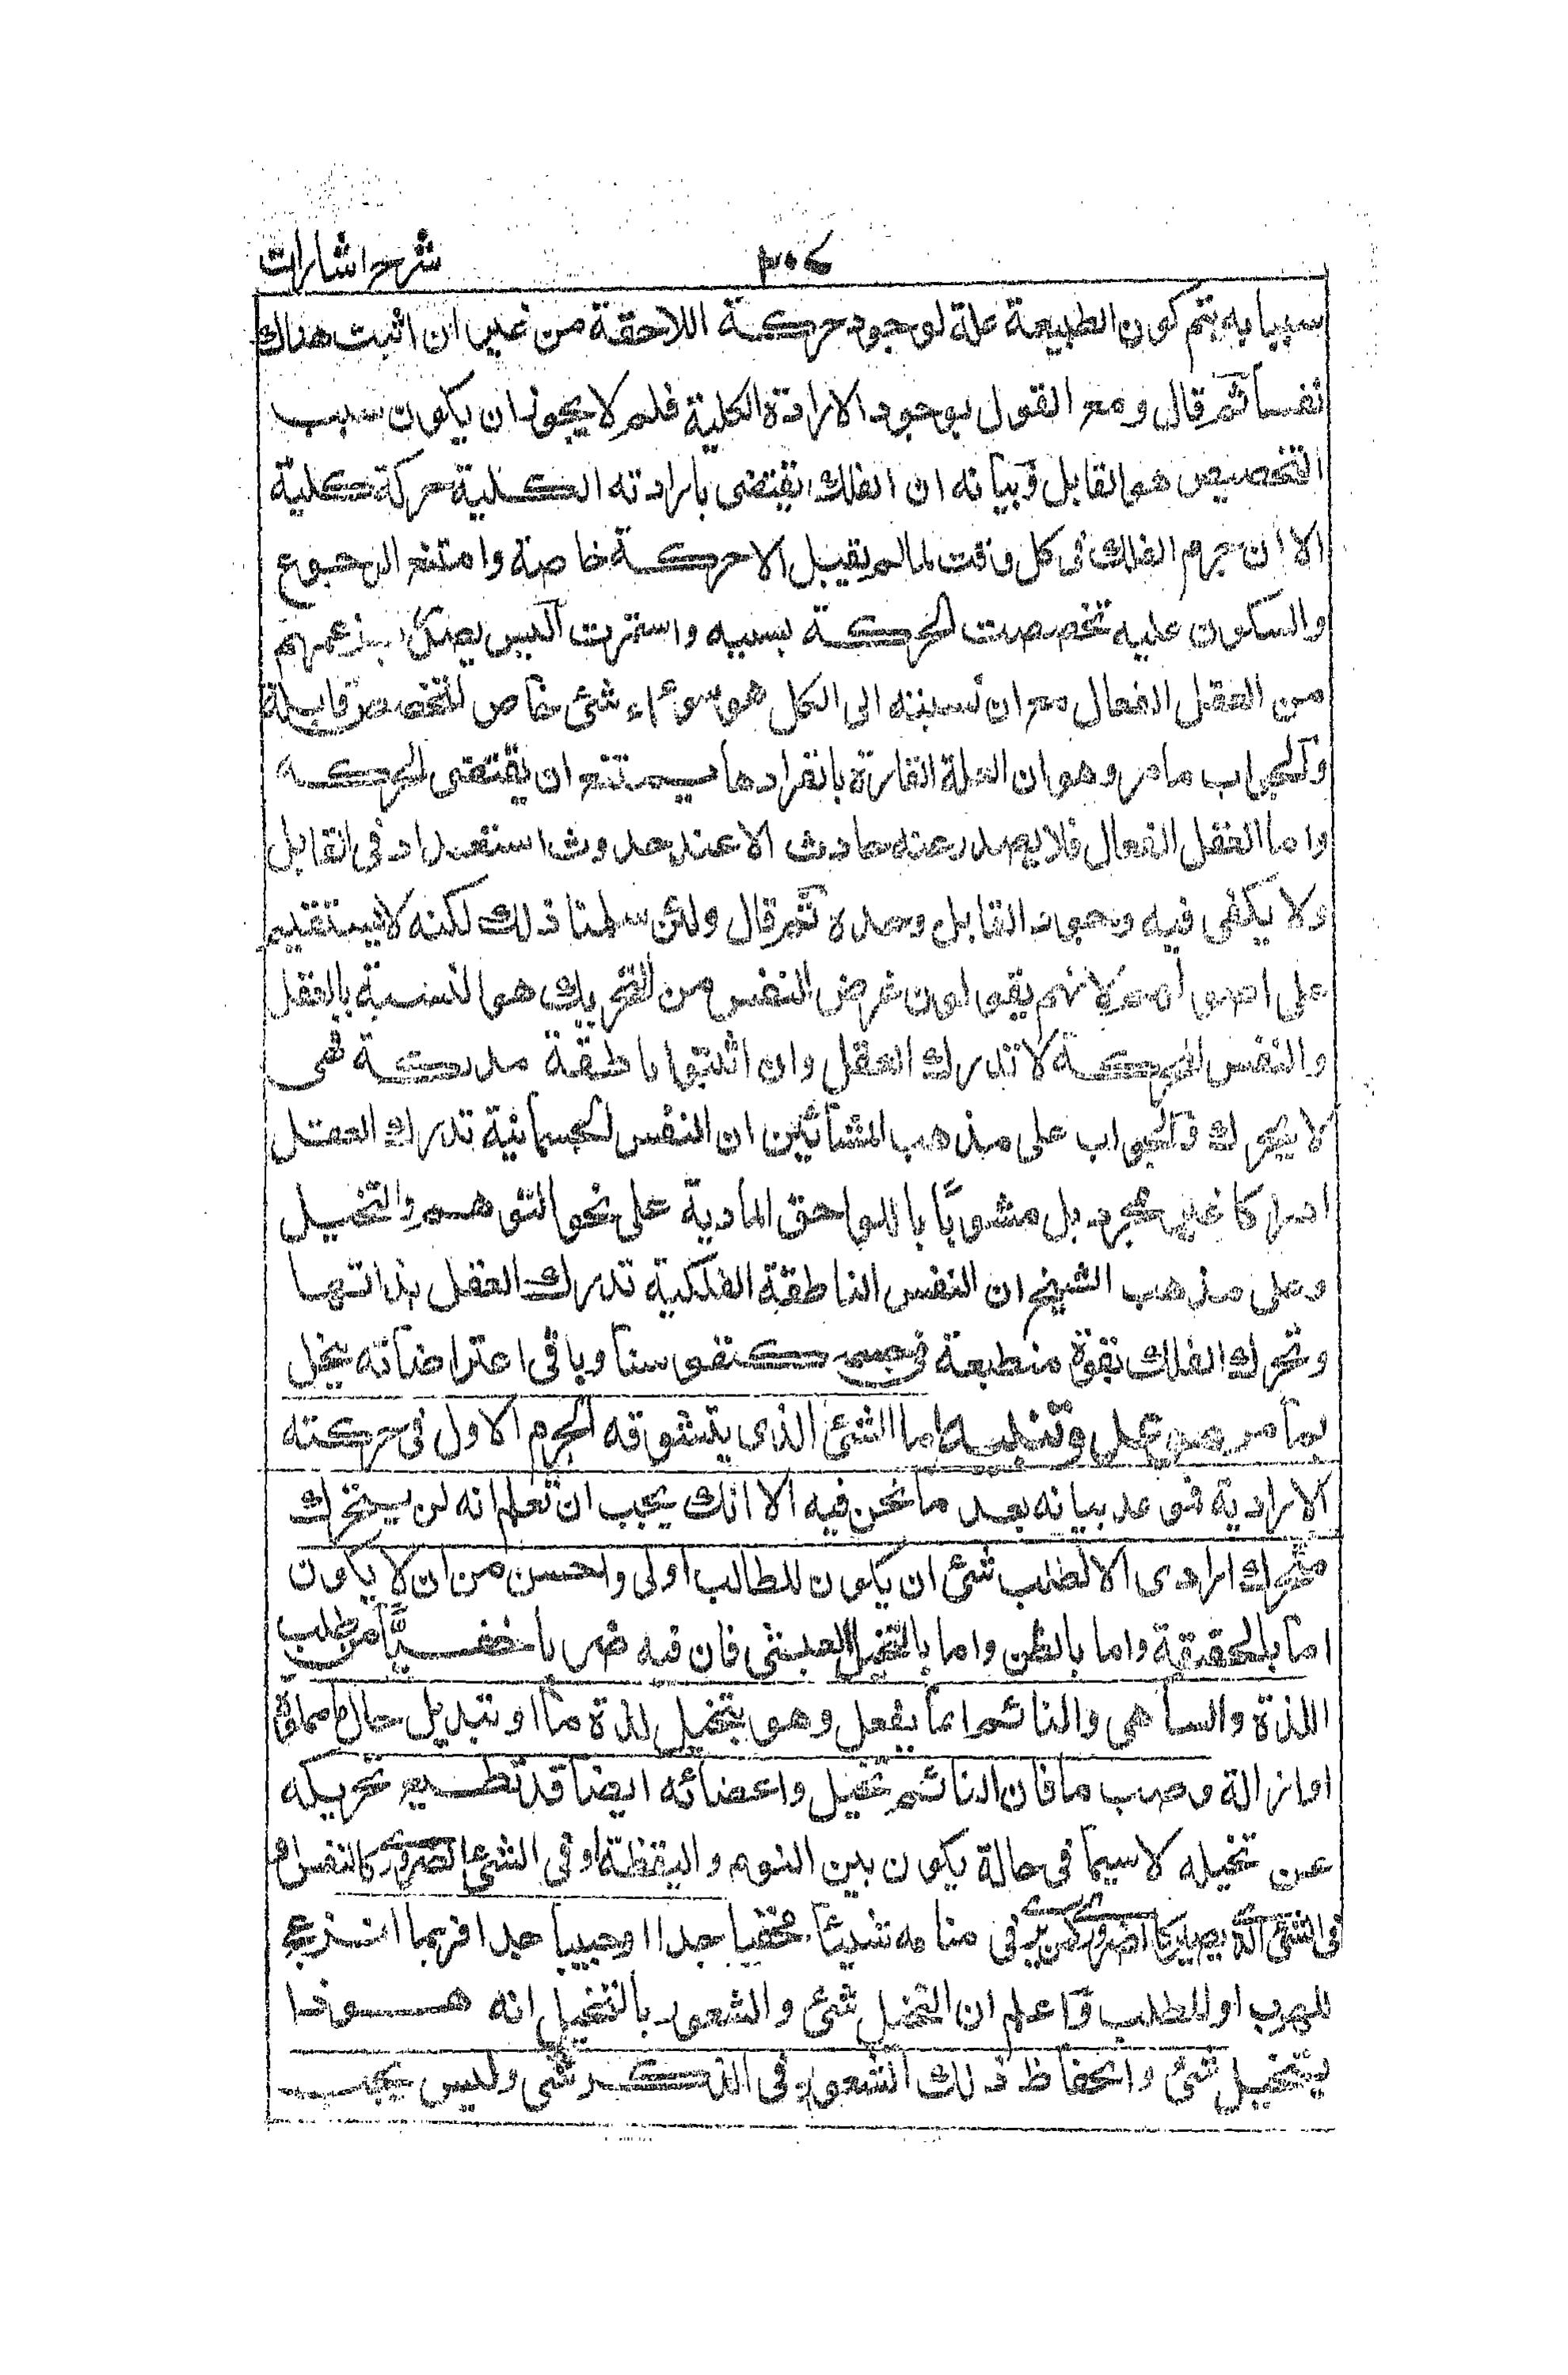 شرح اشارات
سببا به يتم كون الطبيعة علة لوجود حركة اللاحقة من غير ان اثبت هناك
نفسا ثم قال ومع القول بوجود الارادة الكلية فلم لا يجوز ان يكون سبب
التخصيص هو القابل وبيانه ان الفلك يقتضى بارادته الكلية حركة كلية
الا ان جرم الفلك فى كل وقت لما لم يقبل الا حركة خاصة وامتنع الرجوع
والسكون عليه تخصصت الحركة بسببه واستمرت اليس يصدر بزعمهم
من العقل الفعال مع ان نسبته الى الكل هو سواء شئ خاص لتخصص قابله
والجواب ما مر وهو ان العلة القارة بانفرادها يمتنع ان يقتضى الحركة
واما العقل الفعال فلا يصدر عنه حادث الا عند حدوث استعداد فى القابل
ولا يكفى فيه وجود القابل وحده ثم قال ولئن سلمنا ذلك لكنه لا يستقيم
على اصولهم لانهم يقولون غرض النفس من التحريك هو النسبة بالعقل
والنفس المحركة لا تدرك العقل وان اثبتوا ناطقة مدركة فهى
لا يحرك والجواب على مذهب المشائين ان النفس الجسمانية تدرك العقل
ادراكا غير مجرد بل مشوبا باللواحق المادية على نحو التوهم والتخيل
وعلى مذهب الشيخ ان النفس الناطقة الفلكية تدرك العقل بذاتها
وتحرك الفلك بقوة منطبعة فى جسمه كنفوسنا وباقى اعتراضاته يخل
بما مر موعد وتنبيه اما الشئ الذى يتشوقه الجرم الاول فى حركته
الارادية فموعد بيانه بعد ما نحن فيه الا انك يجب ان تعلم انه لن يتحرك
متحرك ارادى الا لطلب شئ ان يكون للطالب اولى واحسن من ان لا يكون
اما بالحقيقة واما بالظن واما بالتخيل العبثى فان فيه ضربا خفيا من طلب
اللذة والساهى والنائم انما يفعل وهو يتخيل لذة ما او تبديل حال ما مملوة
او ازالة وصب ما فان النائم تخيل واعضائه ايضا قد تطيع تحريكه
عن تخيله لا سيما فى حالة يكون بين النوم واليقظة او فى الشئ الضرورى كالتنفس او
فى الشئ الذى يصير كالضرورى كمن يرى فى منامه شيئا مخفيا جدا او حبيبا جدا فربما انزعج
للهرب او للطلب واعلم ان التخيل شئ والشعور بالتخيل انه هو ذا
يتخيل شئ وانحفاظ ذلك الشعور فى الذكر شئ وليس يجب